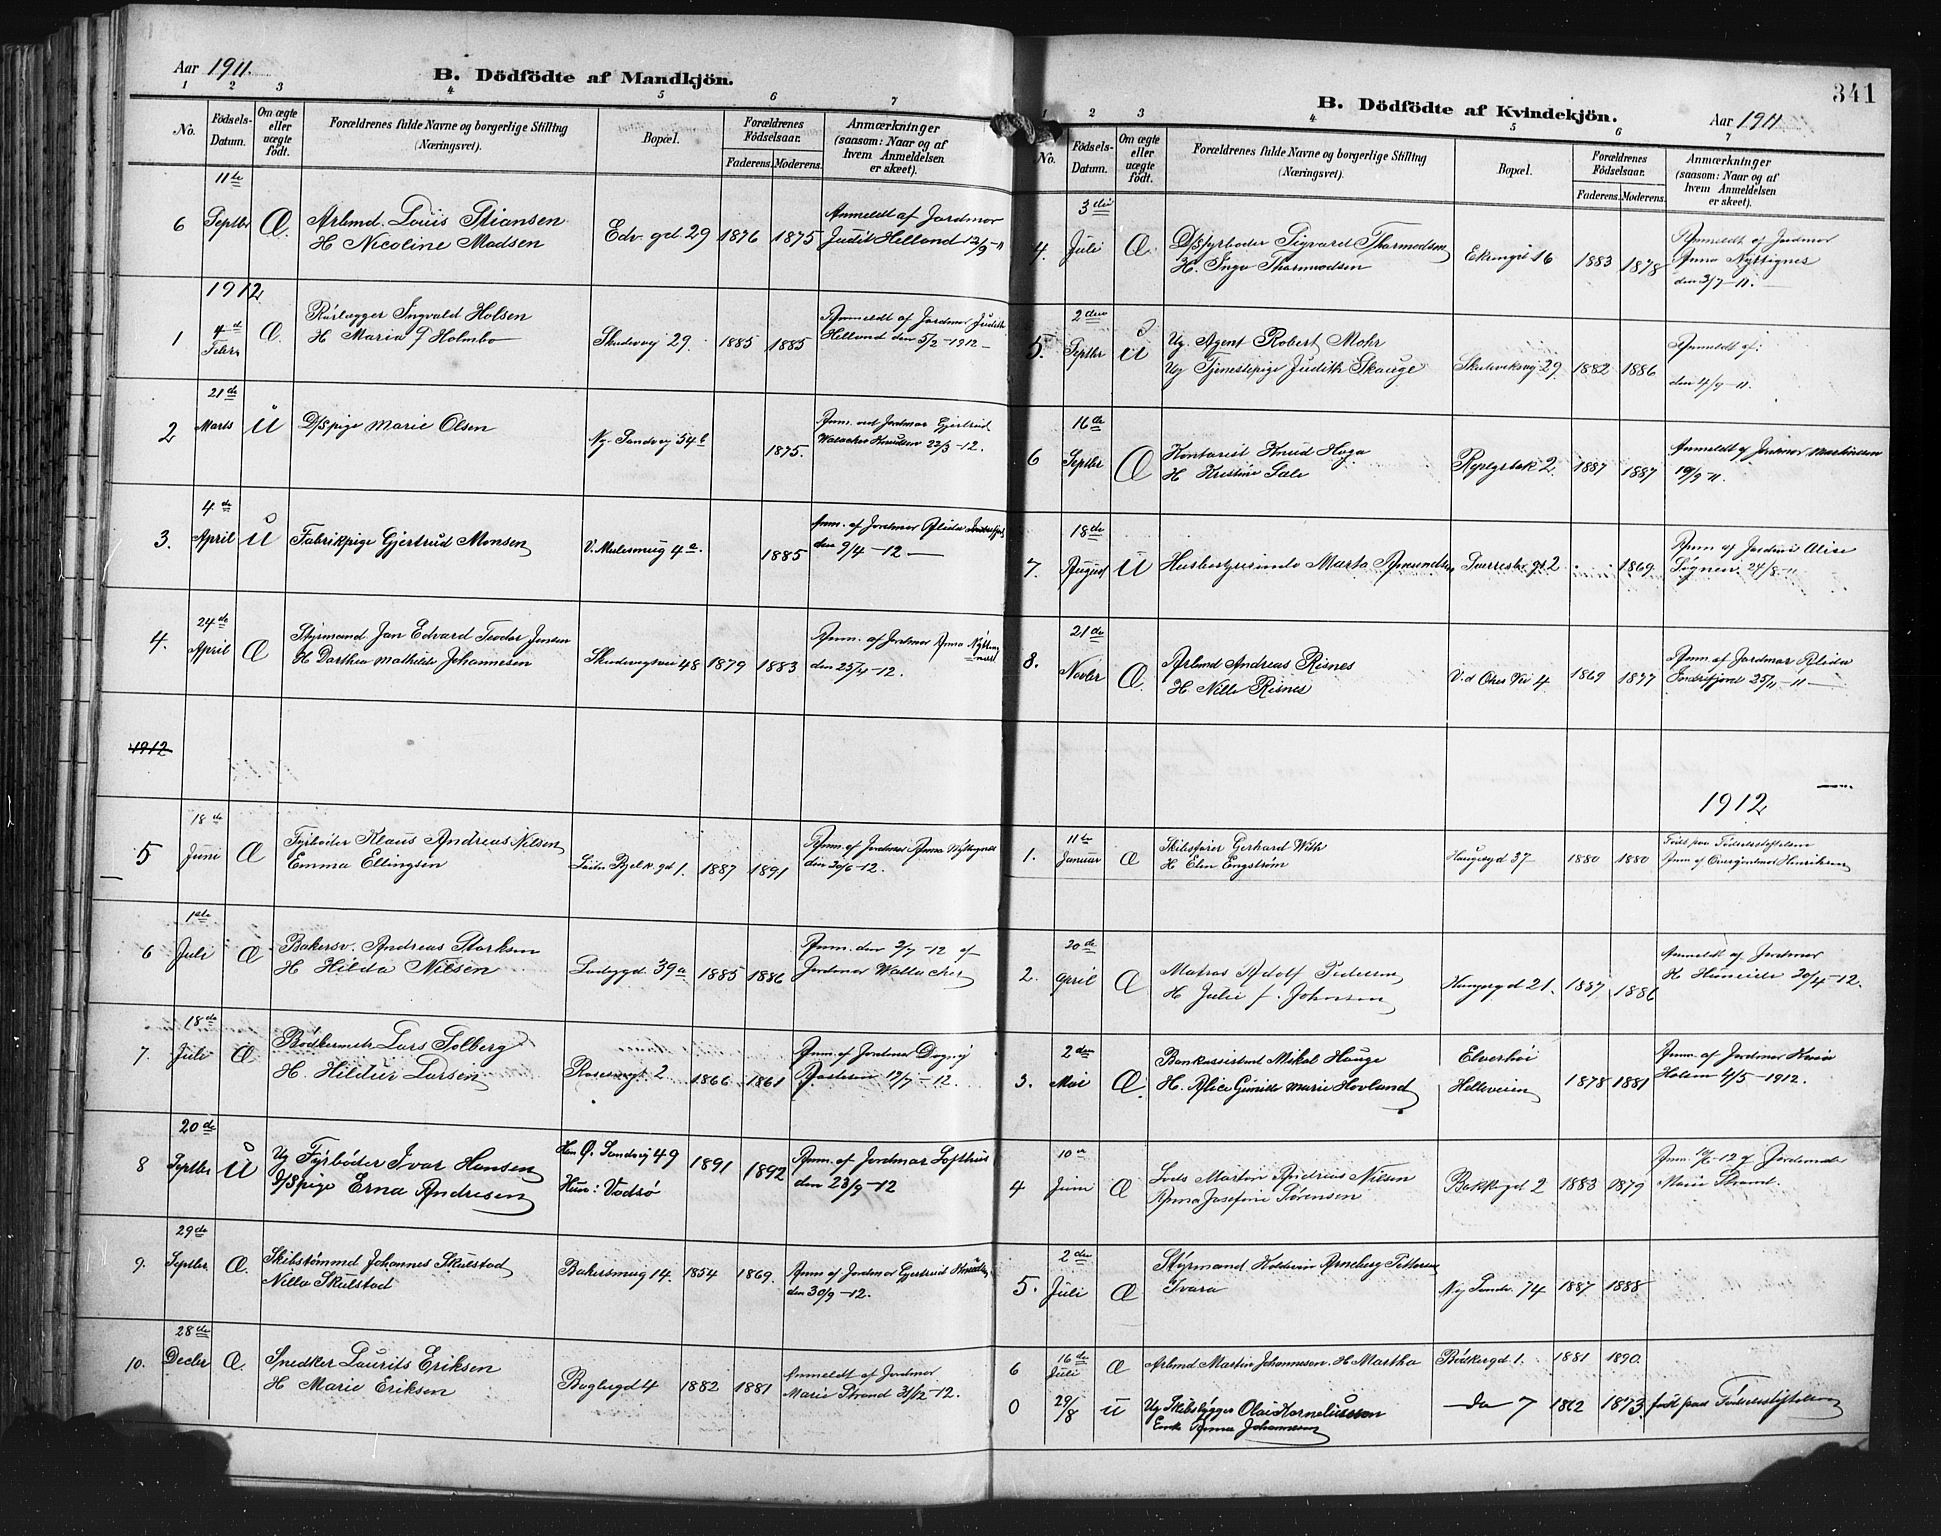 Aar 1911.
B. Dödfödte af Mandkjön.
1 2 3 4 5 6 7
No. Födsels-Datum. Om ægte eller uægte födt. Forældrenes fulde Navne og borgerlige Stilling (Næringsvei). Bopæl. Forældrenes Födselsaar. Faderens. Moderens. Anmærkninger (saasom: Naar og af hvem Anmeldelsen er skeet).
11te
6 Septbr Æ. Arbmd. Louis Stiansen
H Nicoline Madsen Edv. gd 29 1876 1875 Anmeldt af Jordmor
Judit Helland 12/9-11
1912
1 4d Febr Æ. Rørlægger Ingvald Holsen
H Maria f Holmbo Skudevig 29. 1885 1885 Anmeldt af Jordmor Judith
Helland den 5/2-1912
21de
2 Marts U D/Spige Marie Olsen Ny-Sandvig 54b 1875. Anm. ved Jordmor Gjertrud
Knudsen 22/3-12.
4de
3. April U Fabrikpige Gjertrud Monsen V. Mulesmug 4a. 1885 Anm. af Jordmor Alida
den 9/4-12
24de
4. April Æ Styrmand Jan Edvard Teodor Jensen
H Dorthea Mathilde Johannesen 48 1879 1883 Anm. af Jordmor Anna
den 25/4-12.
1912
18de
5 Juni Æ Fyrbøder Klaus Andreas Nilsen
Emma Ellingsen gd 1. 1887 1891 Anm. af Jordmor Anna
den 20/6-12.
1ste
6 Juli Æ Bakersv. Andreas Storksen
H Hilda Nilsen 39a 1885 1886 Anm. den 2/7-12 af
Jordmor
18de
7. Juli Æ Bødkermstr Lars Solberg
H. Hildur Larsen 2 1866 1861 Anm. af Jordmor Dagny
12/7-12.
20de
8 Septbr U Ug Fyrbøder Ivar Hansen
D/Spige Erna Andresen Han Ø. Sandvig 49
Hun: Vadsø 1891 1892 Anm. af Jordmor Lofthus
den 23/9-12
29de
9. Septbr. Æ. Skibstømmd Johannes Skulstad
Nilla Skulstad Bakersmug 14. 1854 1869. Anm af Jordmor Gjertrud Knudsen
den 30/9-12.
28de
10. Decbr Æ. Snedker Laurits Eriksen
H Marie Eriksen 4 1882 1881 Anmeldt af Jordmor
Marie Strand 31/12-12.
341
B. Dödfödte af Kvindekjön.
Aar 1911
1 2 3 4 5 6 7
No. Födsels-Datum. Om ægte eller uægte födt. Forældrenes fulde Navne og borgerlige Stilling (Næringsvei). Bopæl. Forældrenes Födselsaar. Faderens. Moderens. Anmærkninger (saasom: Naar og af hvem Anmeldelsen er skeet).
3die
4. Juli Æ D/Sfyrbøder Sigvard Thormodsen
H. Inga Thormodsen 16 1883 1878 Anmeldt af Jordmor
Anna
den 3/7-11.
2den
5. Septbr U Ug Agent Robert Mohr
Ug Tjenestepige Judith Skauge Skuteviksvg 29. 1882 1886 Anmeldt af:
den 4/9-11.
16de
6 Septbr Æ Kontorist Knud Haga
H Kristine 2. 1887 1887 Anmeldt af Jordmor Martinsen
19/9-11.
18de
7. August U Husbestyrerinde Marta Amundsen gt 2 1869. Anm af Jordmor Alise
24/8-11
21de
8. Novbr Æ. Arbmd Andreas Risnes
H Nille Risnes 4 1869 1877 Anm. af Jordmor Alida
25/11-11
1912
11te
1. Januar Æ Skibsfører Gerhard
H Elen Engstrøm Haugesgd 37 1880 1880 Født paa Fødselsstiftelsen
Anm af Overjordmor Henriksen
20de
2. April Æ Matros Adolf Pedersen
H. Julie f. Johnsen 21. 1887 1886 Anmeldt af Jordmor
H 20/4-12.
2den
3. Mai Æ. Bankassistent Mikal Hauge
H. Alice Marie Hovland Elverhøi
Helleveien 1878 1881 Anm. af Jordmor
Holem 4/5-1912.
10de
4 Juni Æ Lods Martin Andreas Nilsen
Anna Josefine Sørensen Bakkegd 2 1883 1879
Marie Strand.
2den
5. Juli Æ Styrmand Arneberg Pettersen
Ivara Ny Sandv. 74 1887 1888
16de
6 Juli Æ Arbmd Martin Johannesen. H Martha Bødkergd 1. 1881 1890.
0 29/8 U Ug Skibsbygger Olai Korneliussen
Enk Anna Johannesen do 7 1862 1873. født paa Fødselsstiftelsen